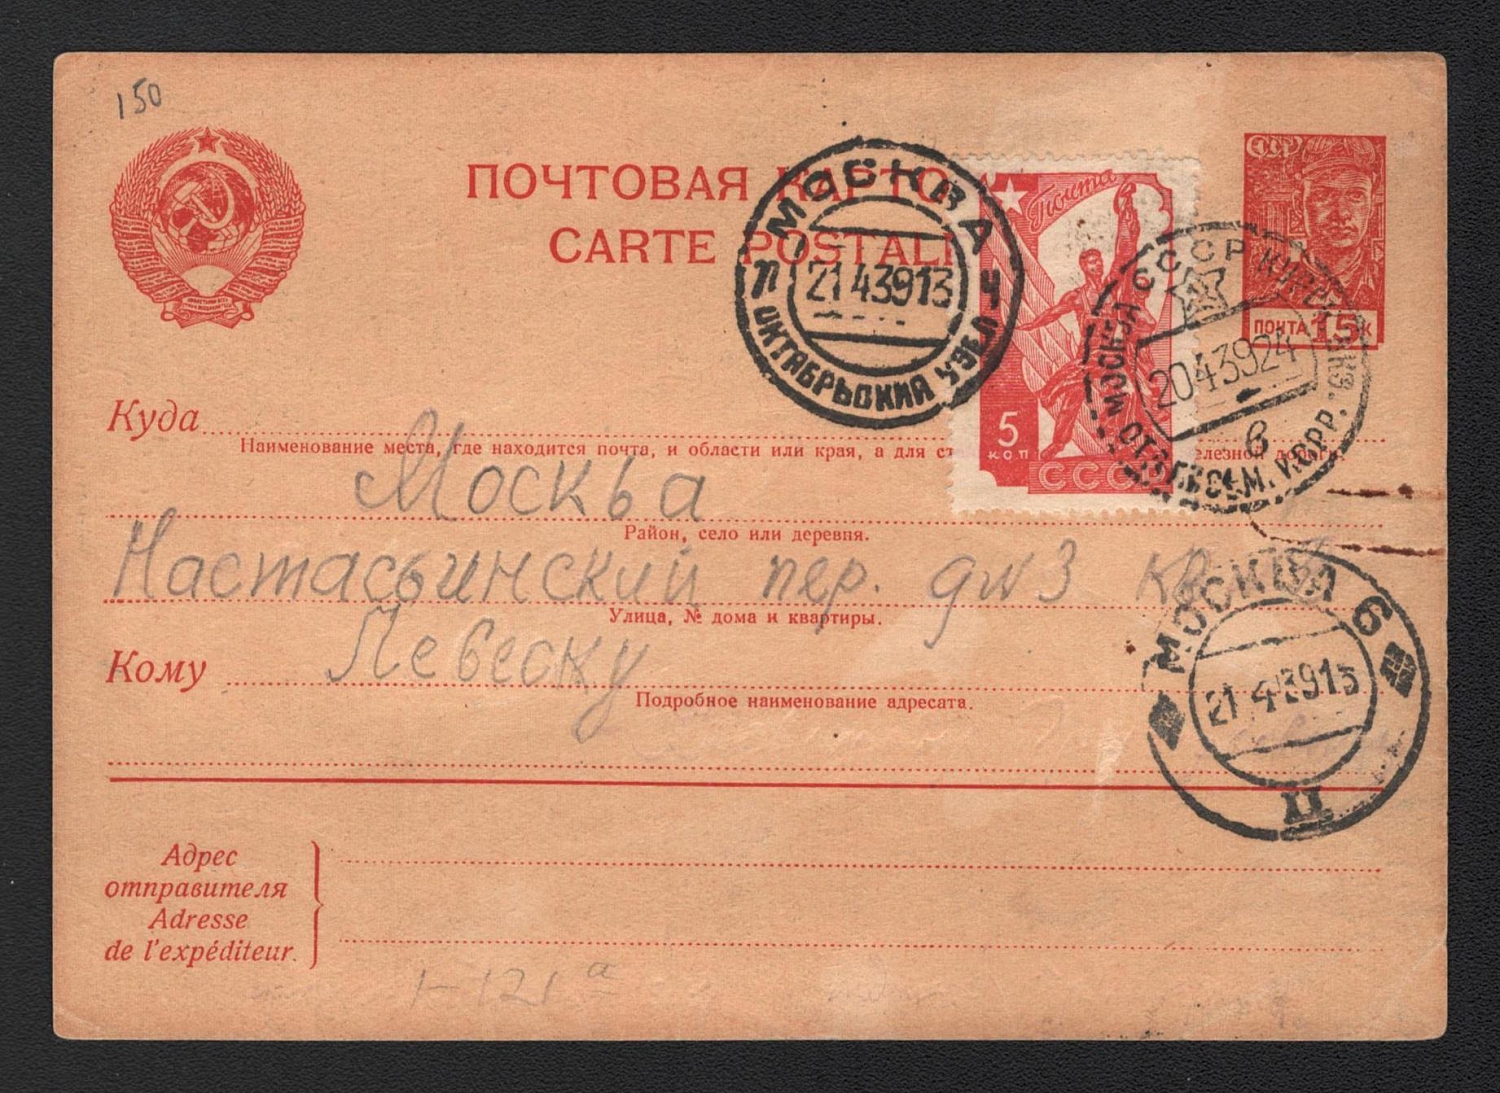 150
ПОЧТОВАЯ КАРТО
CARTE POSTALE
МОСКВА
21 4 39 13
П Ч
ОКТЯБРЬСКИЙ УЗЕЛ
Почта
5
КОП
СССР
СССР
ПОЧТА 15 К
МОСКВА СССР
20 4 39 24
в
ПИСЬМ. КОРР.
Куда
Наименование места, где находится почта, и области или края, а для ст елезной дороги.
Москва
Район, село или деревня.
Настасьинский пер. д № 3 кв
Улица, № дома и квартиры.
Кому Левеску
Подробное наименование адресата.
МОСКВА 6
21 4 39 13
II
Адрес
отправителя
Adresse
de l'expéditeur.
1-121а